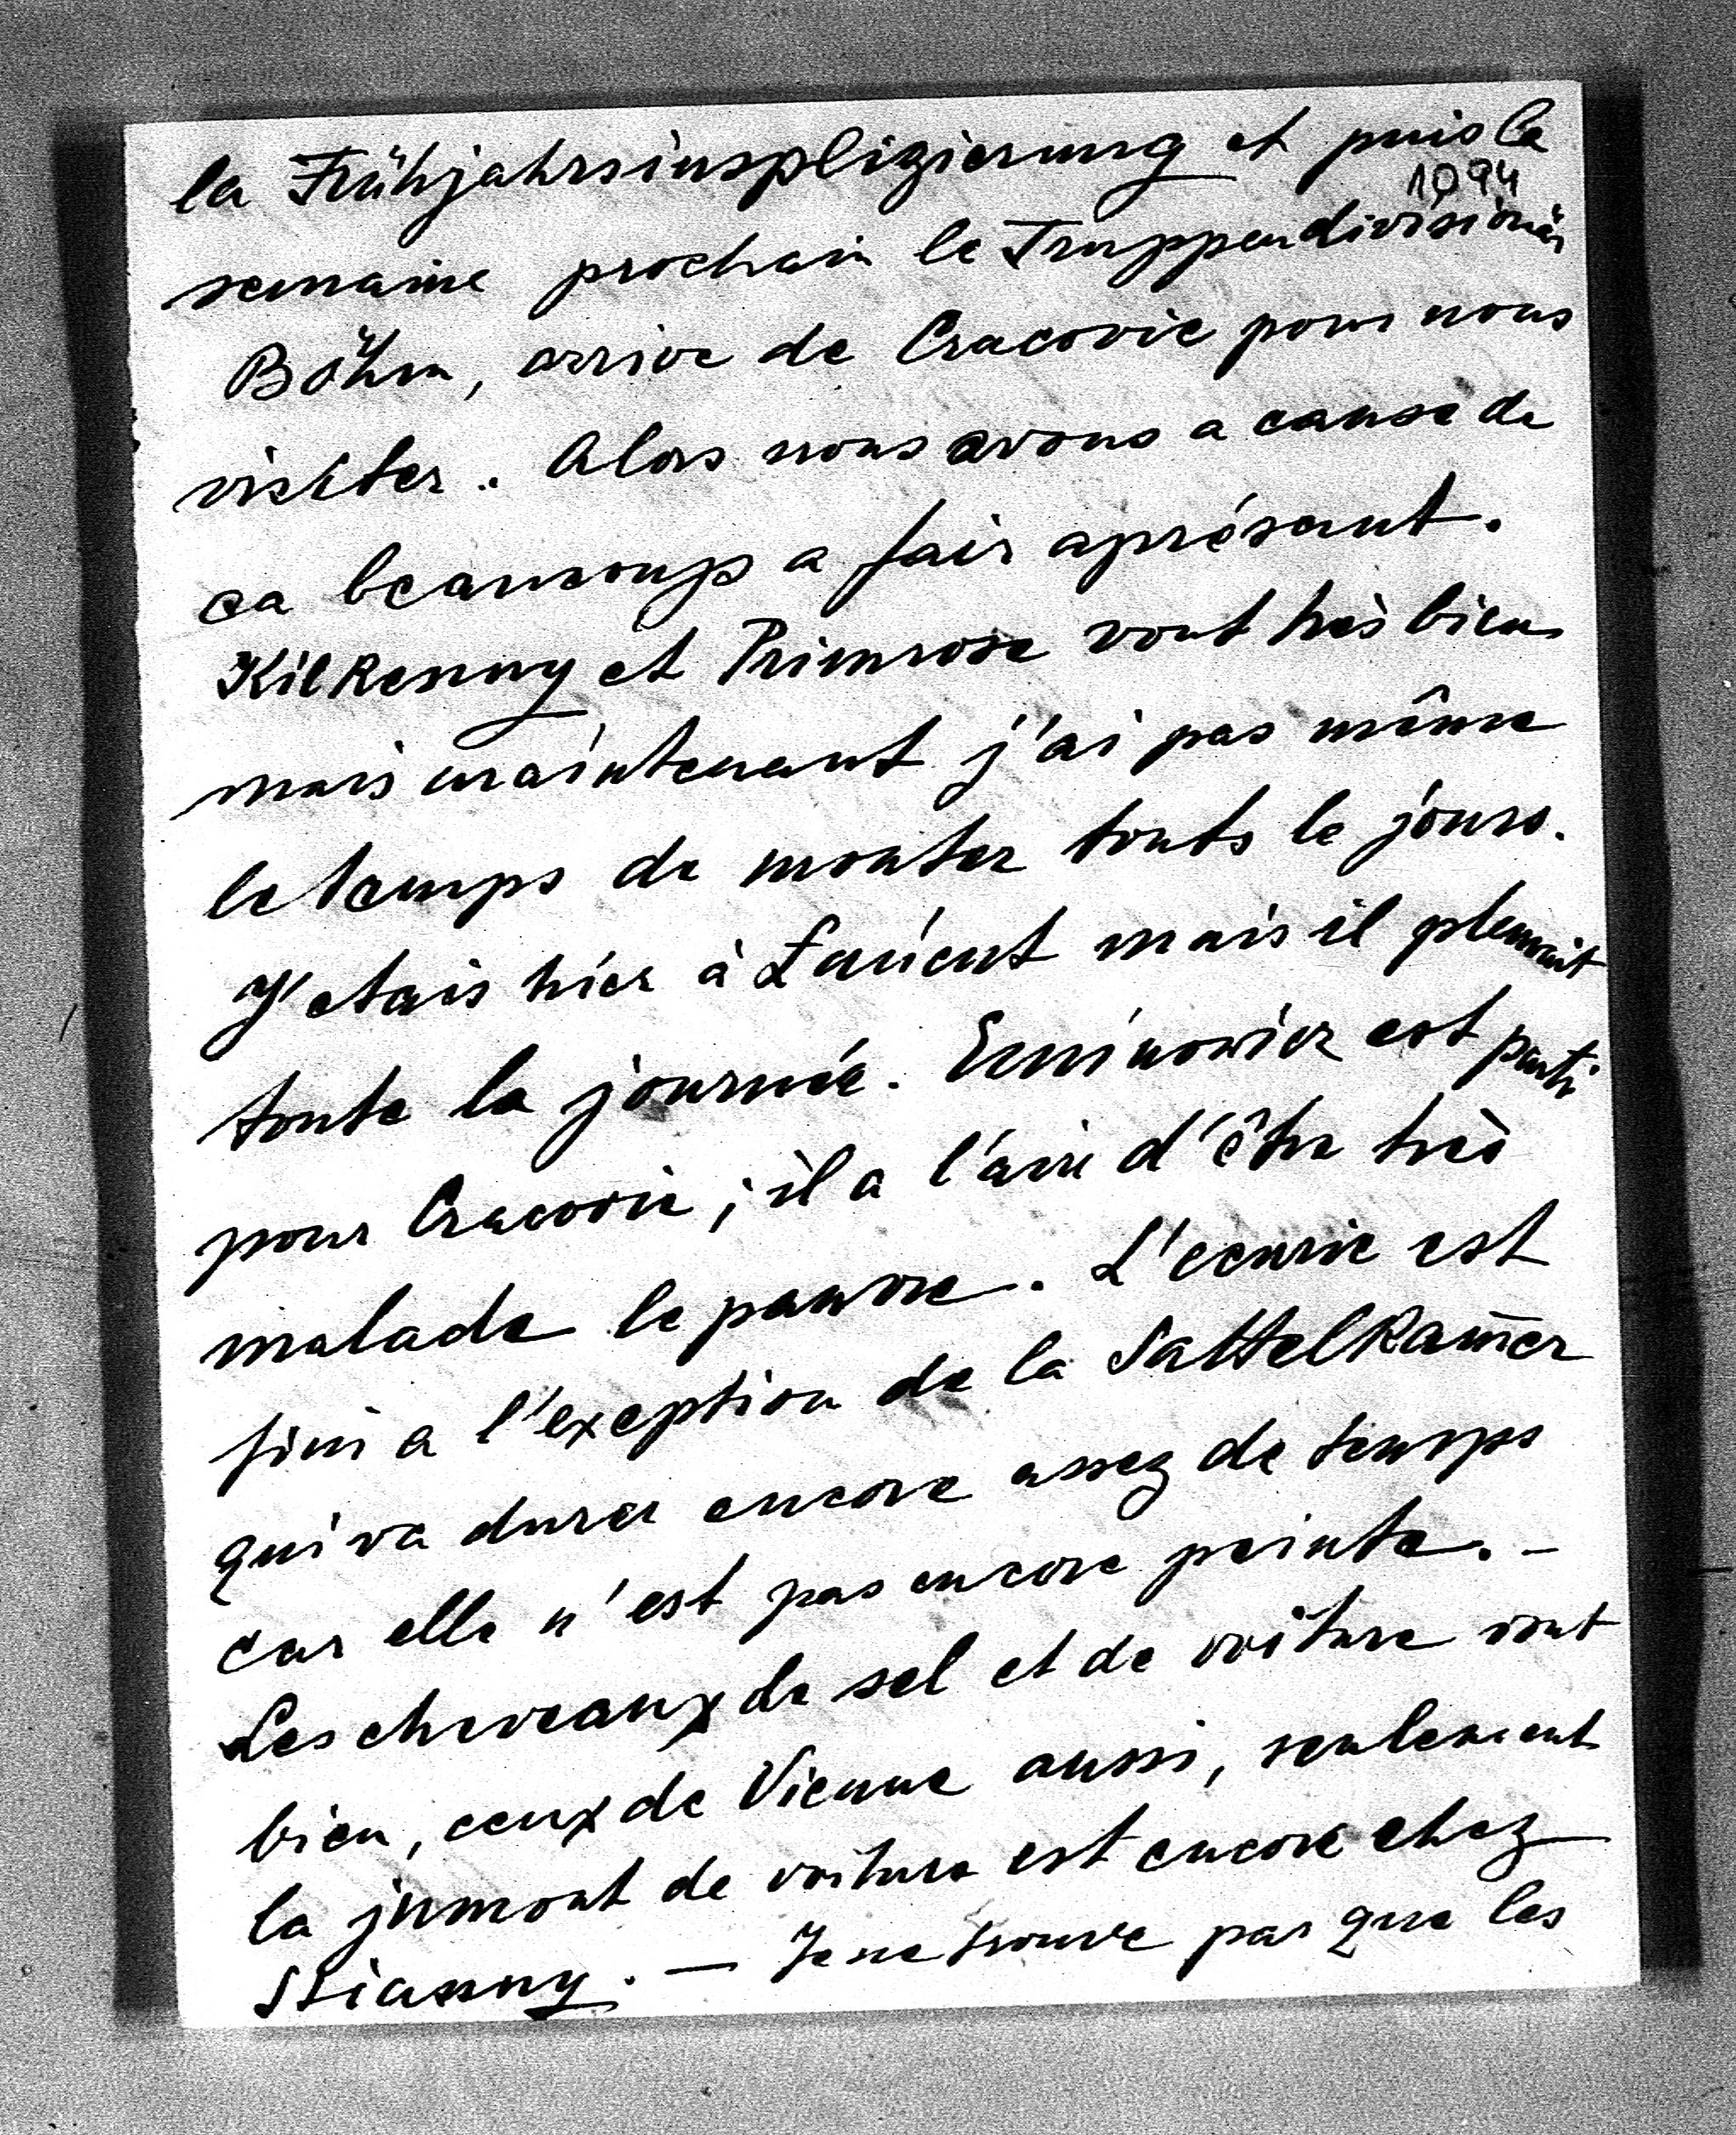 la Frühjahrsinsplizierung et puis la
1094
semaine prochain le Truppendivisionär
Böhm, arrive de Cracovie pour nous
visiter. Alors nous avons a cause de
ca beaucoup a fair aprésent.
Kilkenny et Primrose vont très bien
mais maintenant j'ai pas même
le temps de monter touts le jours.
J'etais hier à Łańcut mais il pleuvait
toute la journée. Eminowicz est parti
pour Cracovie; il a l'air d'être très
malade le pauvre. L'ecurie est
fini a l'exeption de la Sattelkam̄er
qui va durer encore assez de temps
car elle n'est pas encore peinte. –
Les cheveaux de sel et de voiture vont
bien, ceux de Vienne aussi, seulement
la jumont de voiture est encore chez
Stiasny. — Je ne trouve pas que les